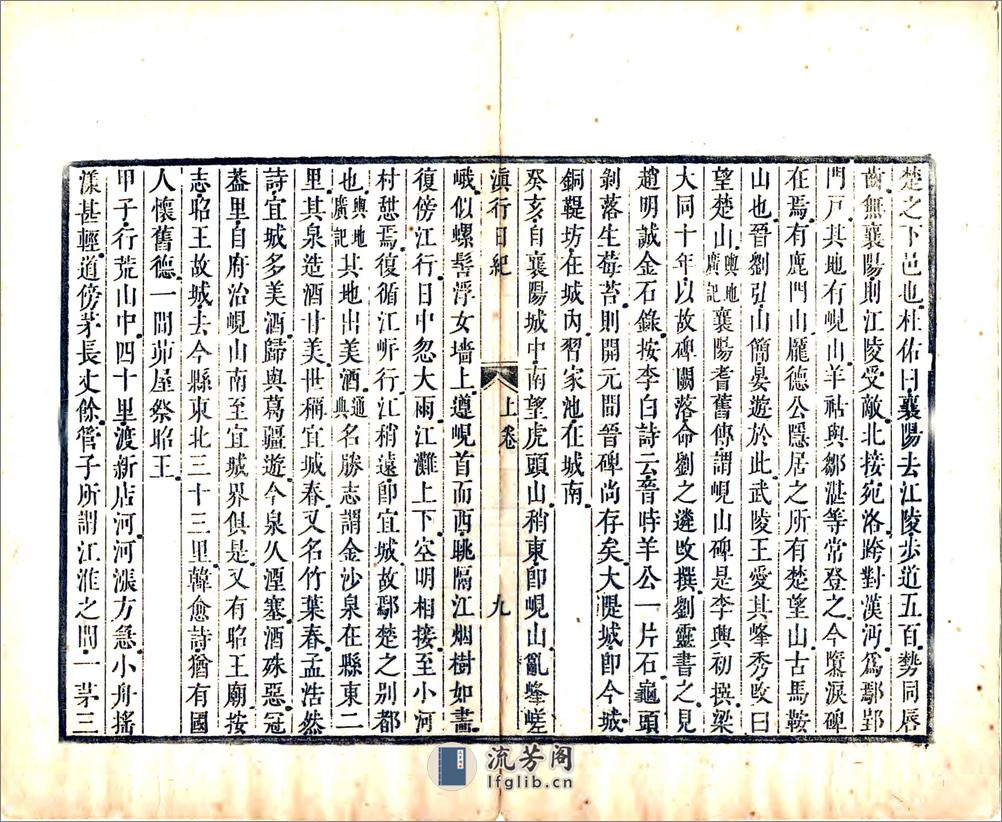 楚之下邑也杜佑曰襄陽去江陵步道五百勢同唇
齒無襄陽則江陵受敵北接宛洛跨對漢沔爲鄢郢
門戸其地有峴山羊祜與鄒湛等常登之今墮淚碑
在焉有鹿門山龐德公隱居之所有楚望山古馬鞍
山也晉劉引山簡宴遊於此武陵王愛其峰秀改曰
望楚山輿地廣記襄陽耆舊傳謂峴山碑是李興初撰梁
大同十年以故碑闕落命劉之遴改撰劉靈書之見
趙明誠金石錄按李白詩云晉時羊公一片石龜頭
剝落生莓苔則開元間晉碑尚存矣大隄城即今城
銅鞮坊在城內習家池在城南
癸亥自襄陽城中南望虎頭山稍東即峴山亂峰嵯
滇行日紀 上卷 九
峨似螺髻浮女墻上遵峴首而西眺隔江烟樹如畫
復傍江行日中忽大雨江灘上下空明相接至小河
村憩焉復循江㟁行江稍遠即宜城故鄢楚之別都
也輿地廣記其地出美酒通典名勝志謂金沙泉在縣東二
里其泉造酒甘美世稱宜城春又名竹葉春孟浩然
詩宜城多美酒歸與葛疆遊今泉久湮塞酒殊惡冠
葢里自府治峴山南至宜城界俱是又有昭王廟按
志昭王故城去今縣東北三十三里韓愈詩猶有國
人懷舊德一間茆屋祭昭王
甲子行荒山中四十里渡新店河河漲方急小舟搖
漾甚輕道傍茅長丈餘管子所謂江淮之間一茅三
流芳阁
lfglib.cn